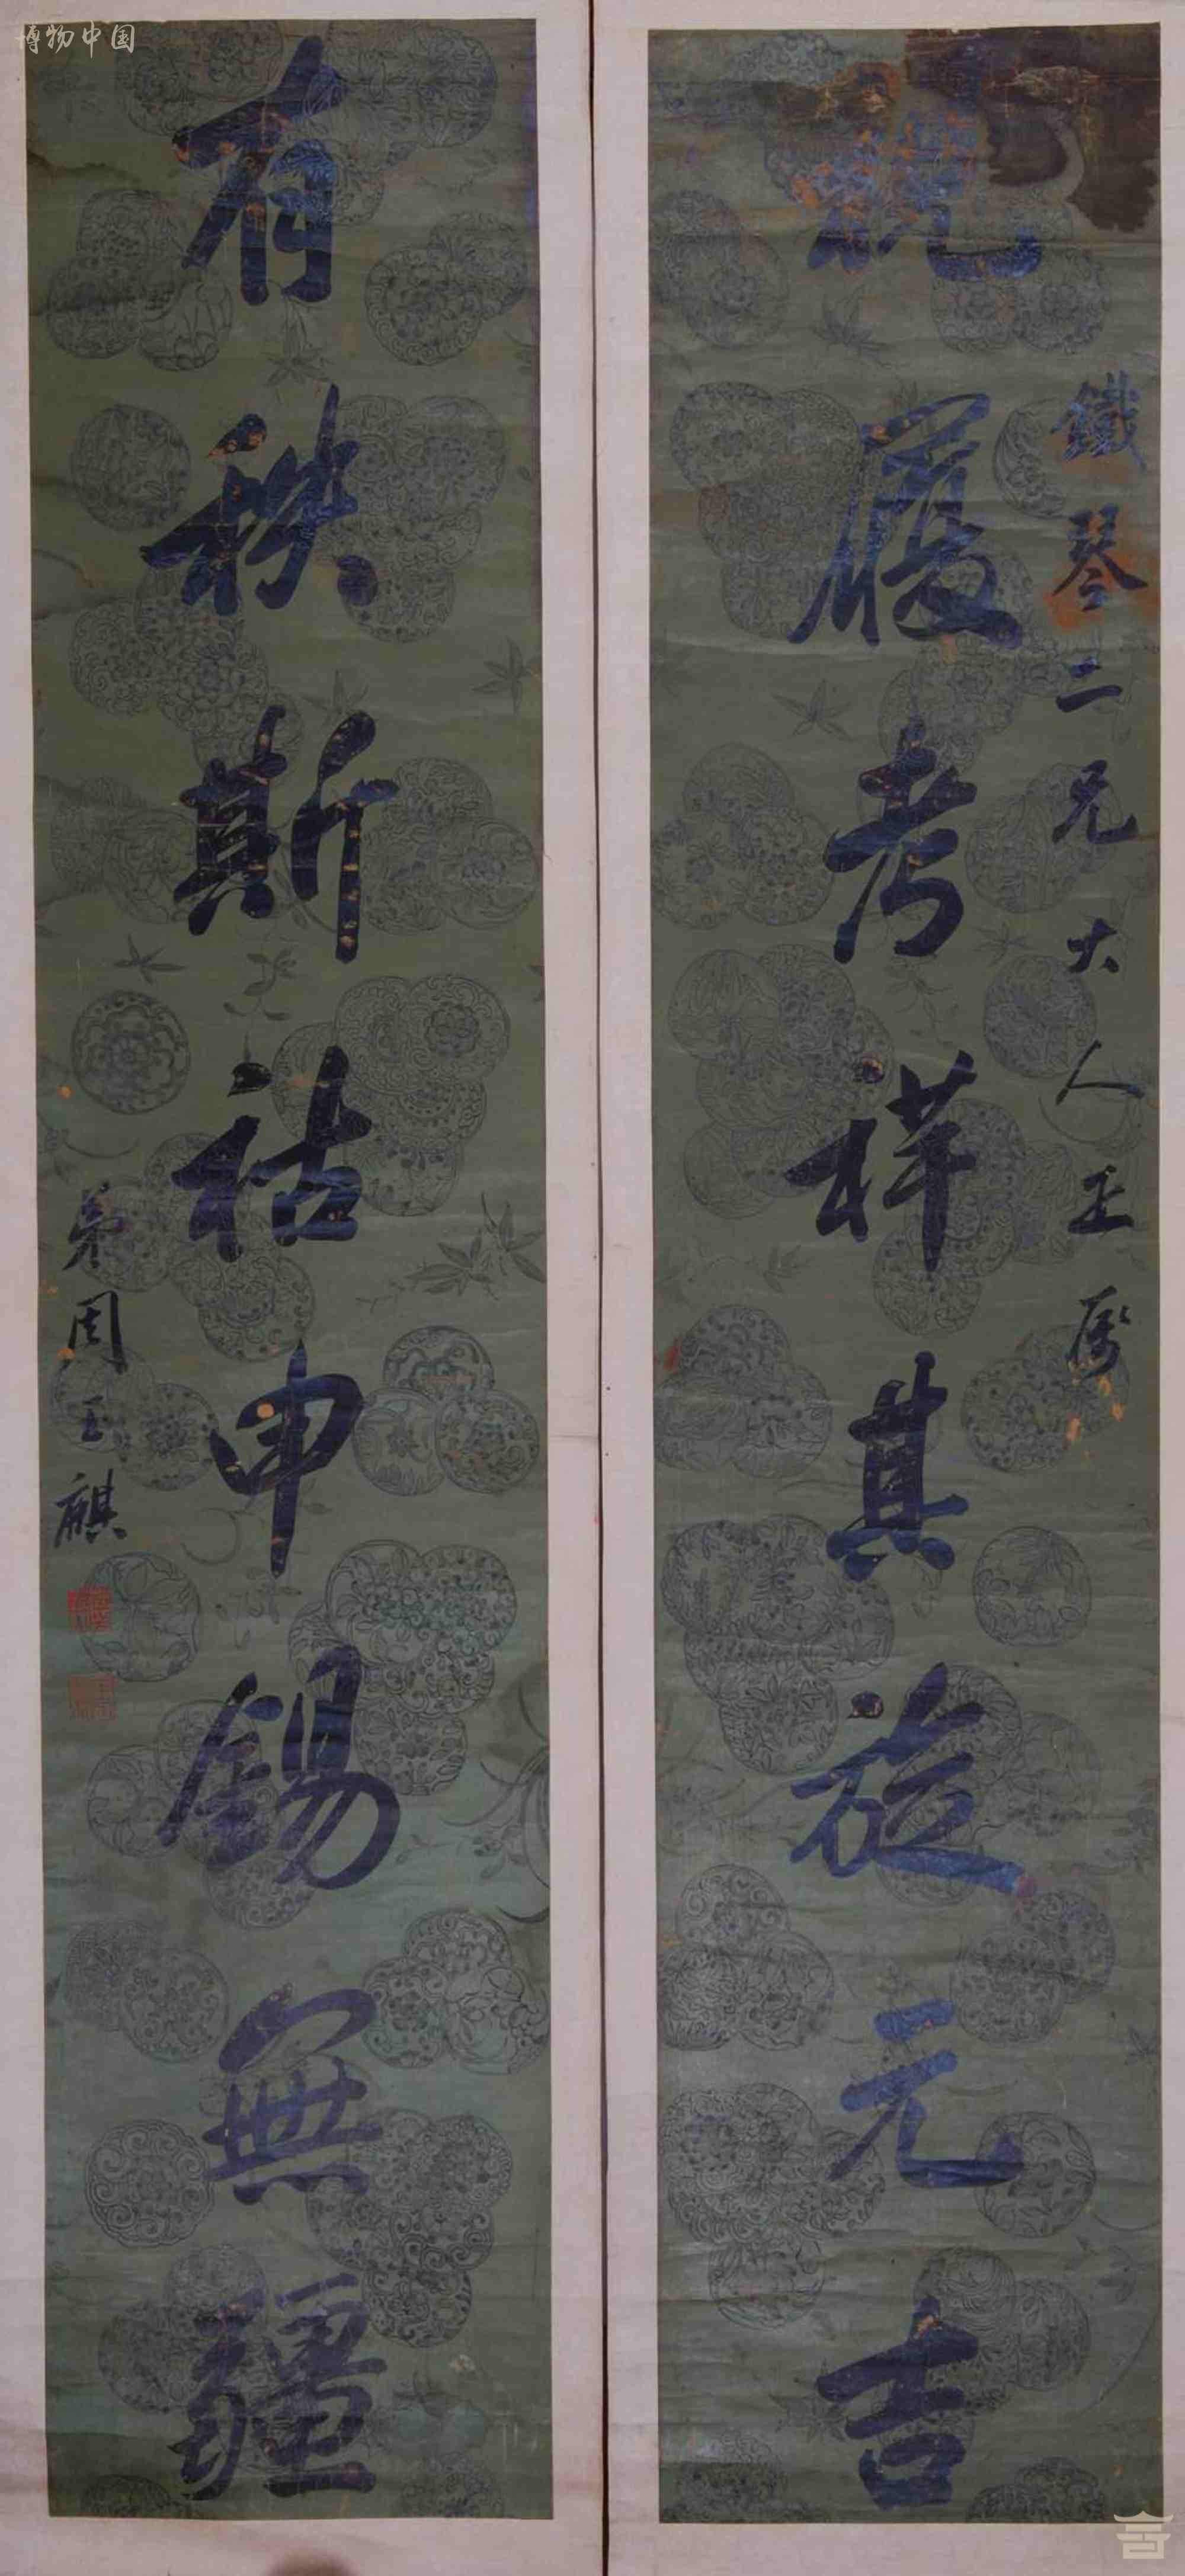 鐵琴二兄大人正屬
視履考祥其旋元吉
有秩斯祜申錫無疆
弟周玉麒
博物中国